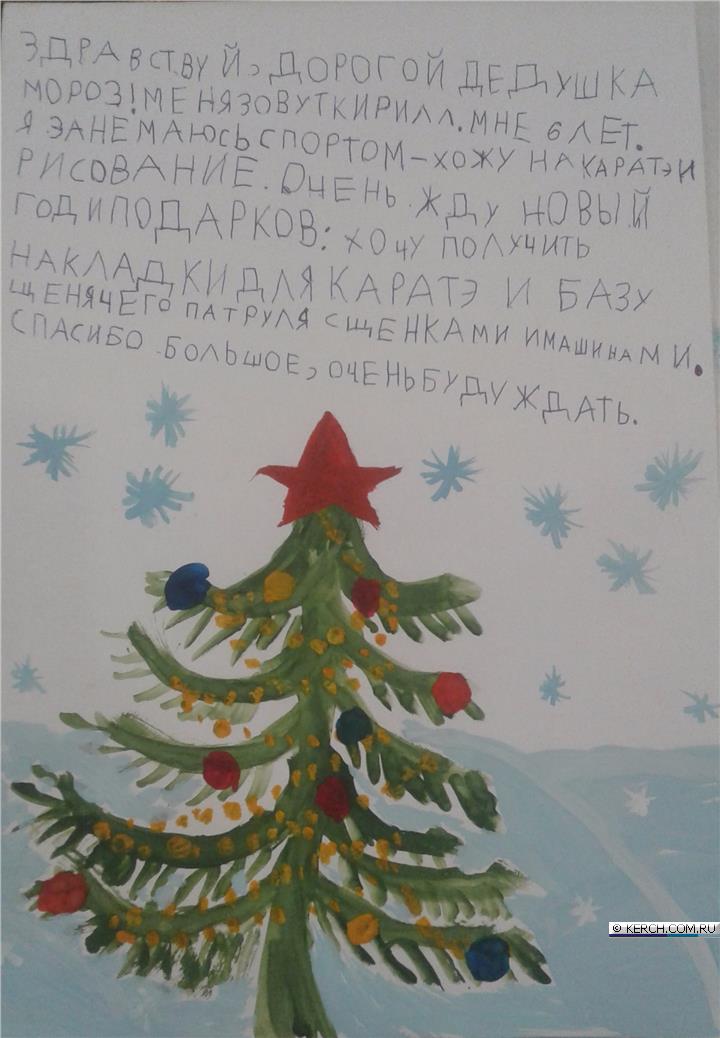 ЗДРАВСТВУЙ, ДОРОГОЙ ДЕДУШКА
МОРОЗ! МЕНЯ ЗОВУТ КИРИЛЛ. МНЕ 6 ЛЕТ.
Я ЗАНЕМАЮСЬ СПОРТОМ – ХОЖУ НА КАРАТЭ И
РИСОВАНИЕ. ОЧЕНЬ ЖДУ НОВЫЙ
ГОД И ПОДАРКОВ: ХОЧУ ПОЛУЧИТЬ
НАКЛАДКИ ДЛЯ КАРАТЭ И БАЗУ
ЩЕНЯЧЕГО ПАТРУЛЯ С ЩЕНКАМИ И МАШИНАМИ.
СПАСИБО БОЛЬШОЕ, ОЧЕНЬ БУДУ ЖДАТЬ.
© KERCH.COM.RU